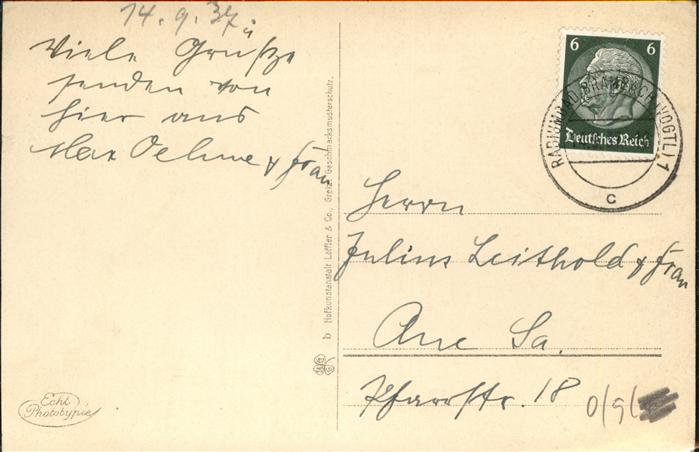 14.9.37
Viele Grüße
senden von
hier aus
Max Oelme & Frau
Echt
Photobypie
b Hofkunstanstalt Löffler & Co., Greiz. Geschmacksmusterschutz.
6 6
Deutsches Reich
RADIUMBAD BRAMBACH (VOGTL) 1
c
Herrn
Julius Leithold & Frau
Aue Sa.
Pfarrstr. 18
0/91